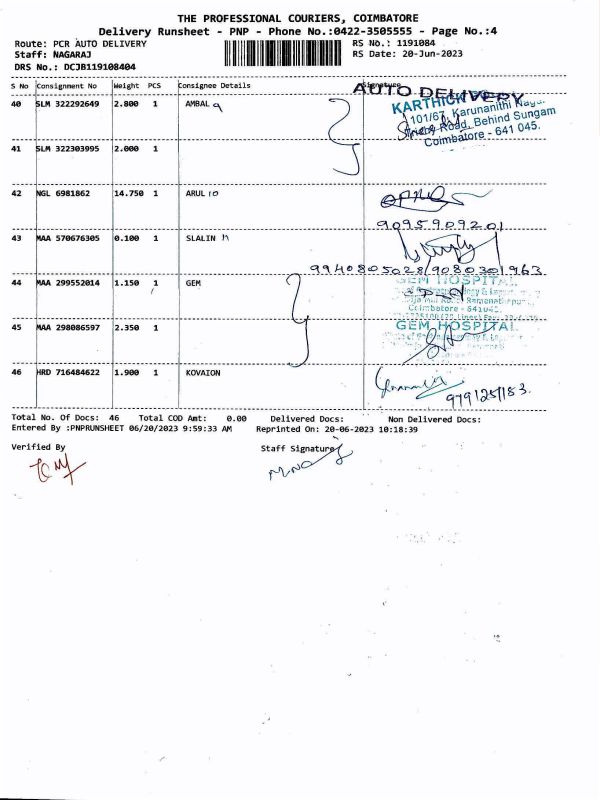 THE PROFESSIONAL COURIERS, COIMBATORE
Delivery Runsheet - PNP - Phone No.:0422-3505555 - Page No.:4
Route: PCR AUTO DELIVERY RS No.: 1191084
Staff: NAGARAJ RS Date: 20-Jun-2023
DRS No.: DCJB119108404
S No Consignment No Weight PCS Consignee Details Signature
AUTO DELIVERY
40 SLM 322292649 2.800 1 AMBAL 9
101/67, Karunanithi Nagar
Road, Behind Sungam
Coimbatore - 641 045.
41 SLM 322303995 2.000 1
42 NGL 6981862 14.750 1 ARUL 10
9095909201
43 MAA 570676305 0.100 1 SLALIN
9940805028/9080301963
44 MAA 299552014 1.150 1 GEM
GEM HOSPITAL
Coimbatore - 641045
45 MAA 298086597 2.350 1
GEM HOSPITAL
46 HRD 716484622 1.900 1 KOVAION
Total No. Of Docs: 46 Total COD Amt: 0.00 Delivered Docs: Non Delivered Docs:
Entered By :PNPRUNSHEET 06/20/2023 9:59:33 AM Reprinted On: 20-06-2023 10:18:39
Verified By Staff Signature